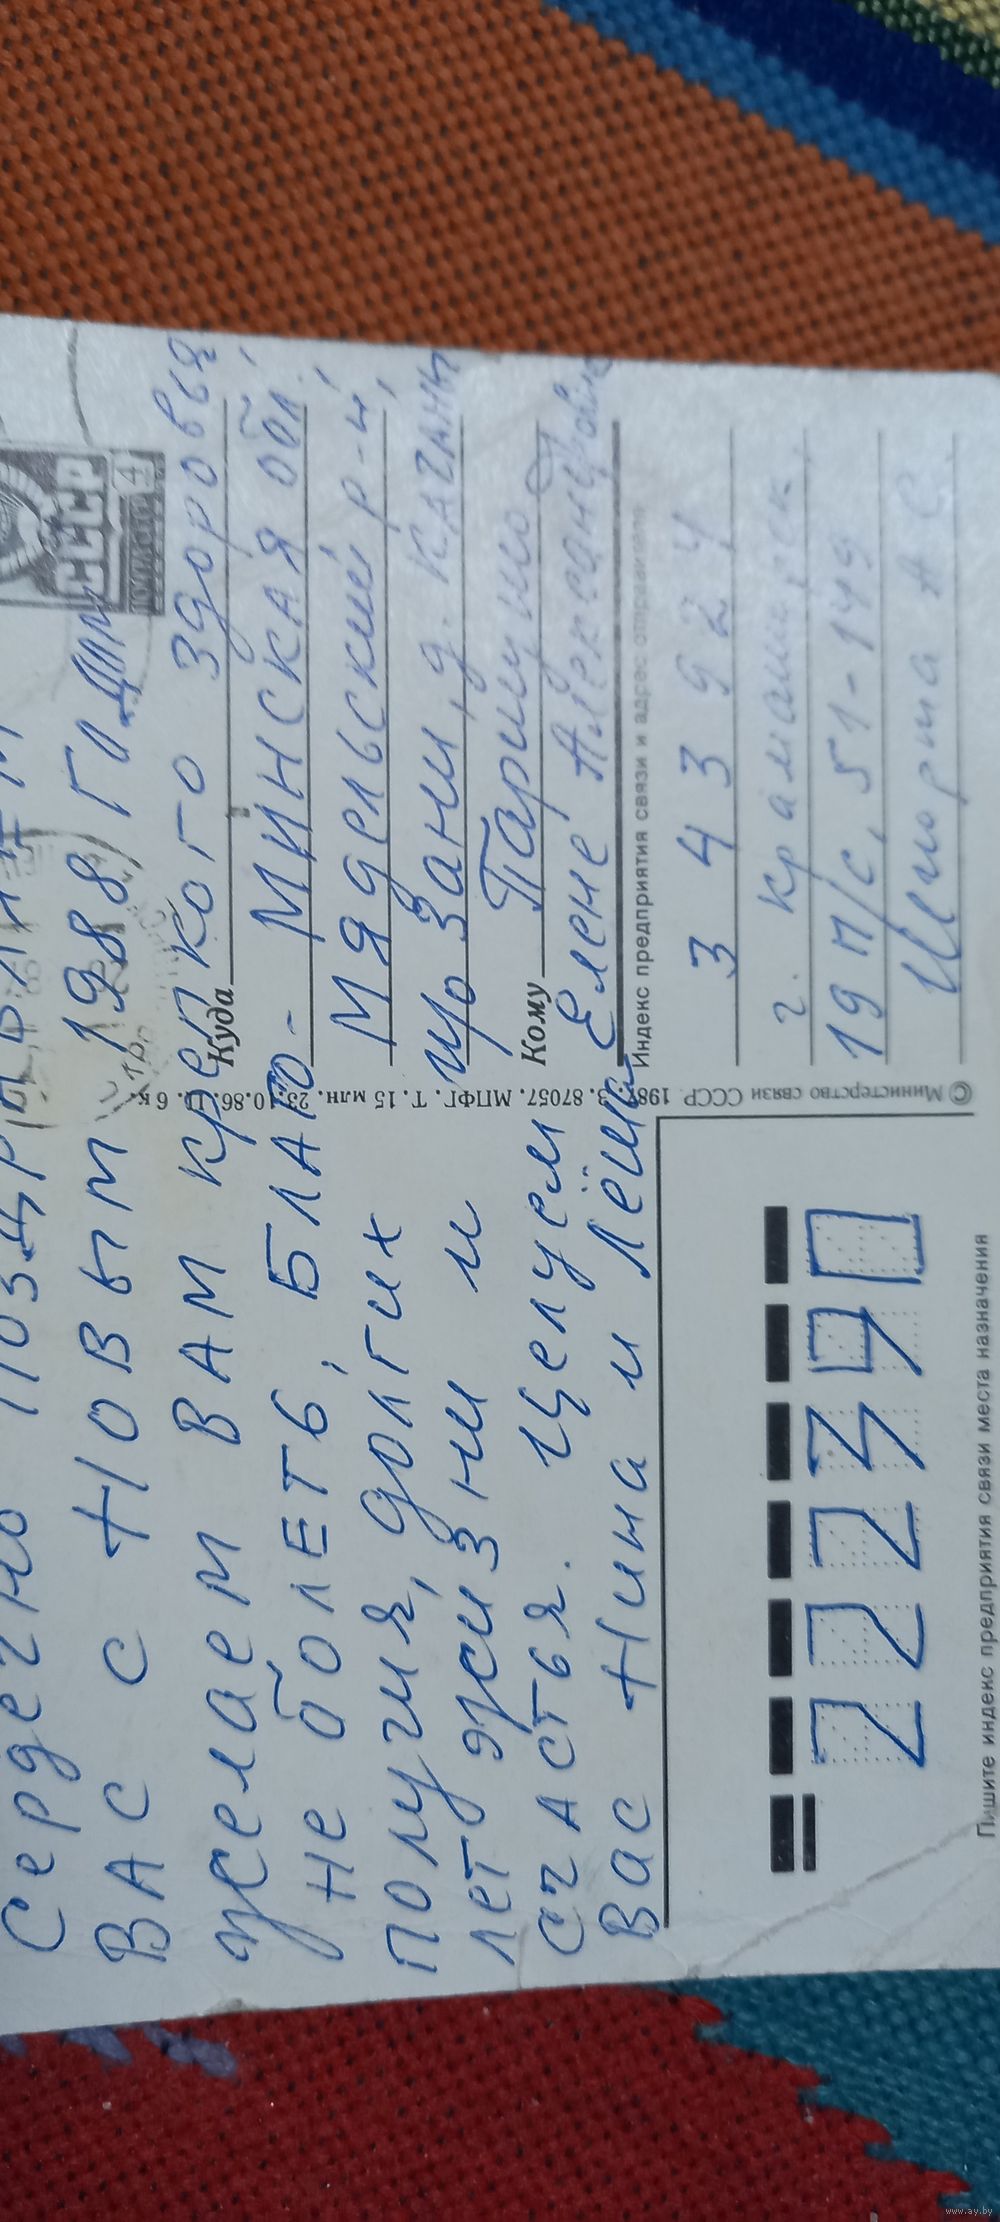 Сердечно поздравляем
ВАС с НОВЫМ 1988 ГОДОМ
желаем ВАМ крепкого здоровья
не болеть, БЛАГО-
получия, долгих
лет жизни и
счастья. Целуем
Вас Нина и Лёша
СССР
4
Куда
МИНСКАЯ обл,
Мядельский р-н,
д. КАЧАНЫ
Кому
Елене Александровне
Индекс предприятия связи и адрес отправителя
334924
19 п/с, 51-149
© Министерство связи СССР. 1987. З. 87057. МПФГ. Т. 15 млн. 23.10.86. Ц. 6 к.
222390
Пишите индекс предприятия связи места назначения
www.ay.by